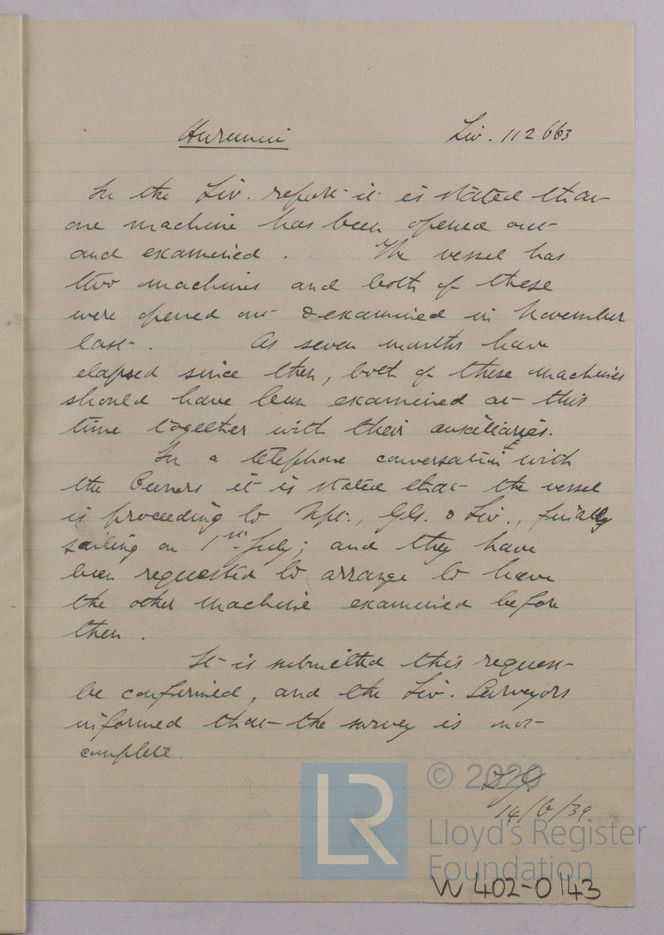 Hurunui Liv. 112663
In the Liv. report it is stated that
one machine has been opened out
and examined. The vessel has
two machines and both of these
were opened out & examined in November
last. As seven months have
elapsed since then, both of these machines
should have been examined at this
time together with their auxiliaries.
In a telephone conversation with
the Owners it is stated that the vessel
is proceeding to Npt., Gls. & Liv., finally
sailing on 1st July; and they have
been requested to arrange to have
the other machine examined before
then.
It is submitted this request
be confirmed, and the Liv. Surveyors
informed that the survey is not
complete.
14/6/39.
© 2020
LR
Lloyd's Register
Foundation
W402-0143